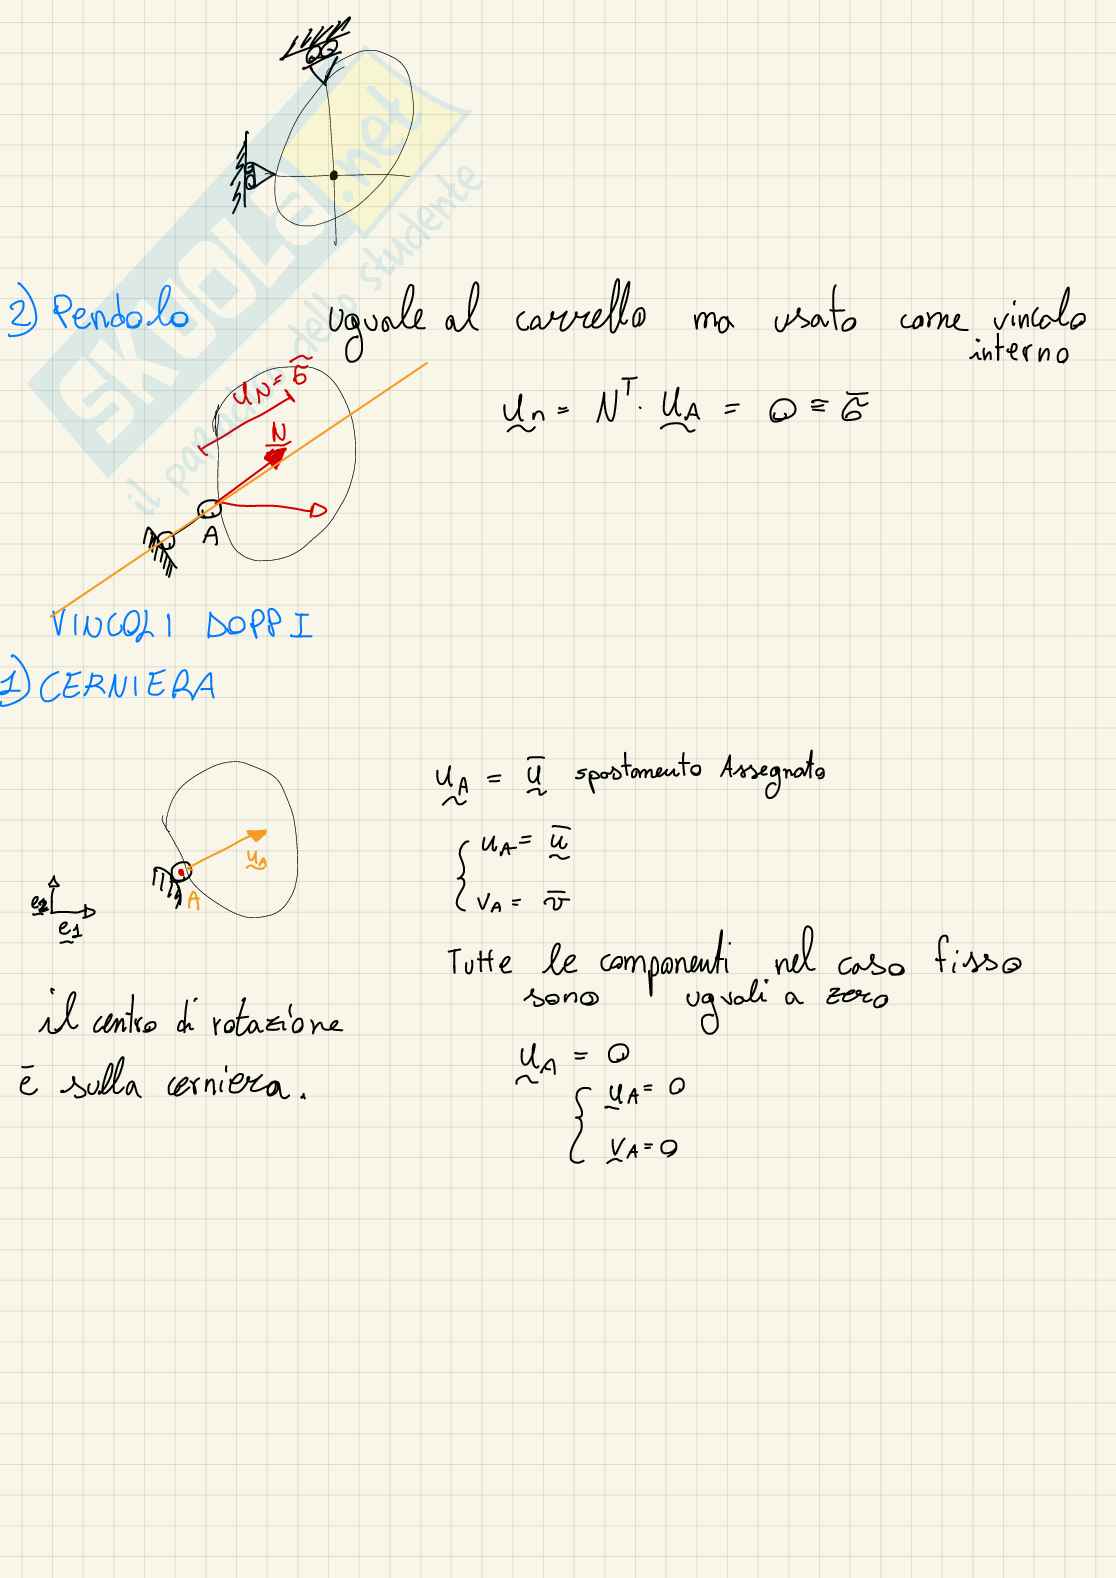 2) Pendolo uguale al carrello ma usato come vincolo
interno
u_N = σ̄
N
u_n = N^T · u_A = 0 ≡ σ̄
A
VINCOLI DOPPI
1) CERNIERA
u_A = ū spostamento Assegnato
u_A = ū
u_A
A
v_A = v̄
e2
e1
Tutte le componenti nel caso fisso
sono uguali a zero
il centro di rotazione
è sulla cerniera.
u_A = 0
u_A = 0
v_A = 0
SKUOLA.net
il paradiso dello studente